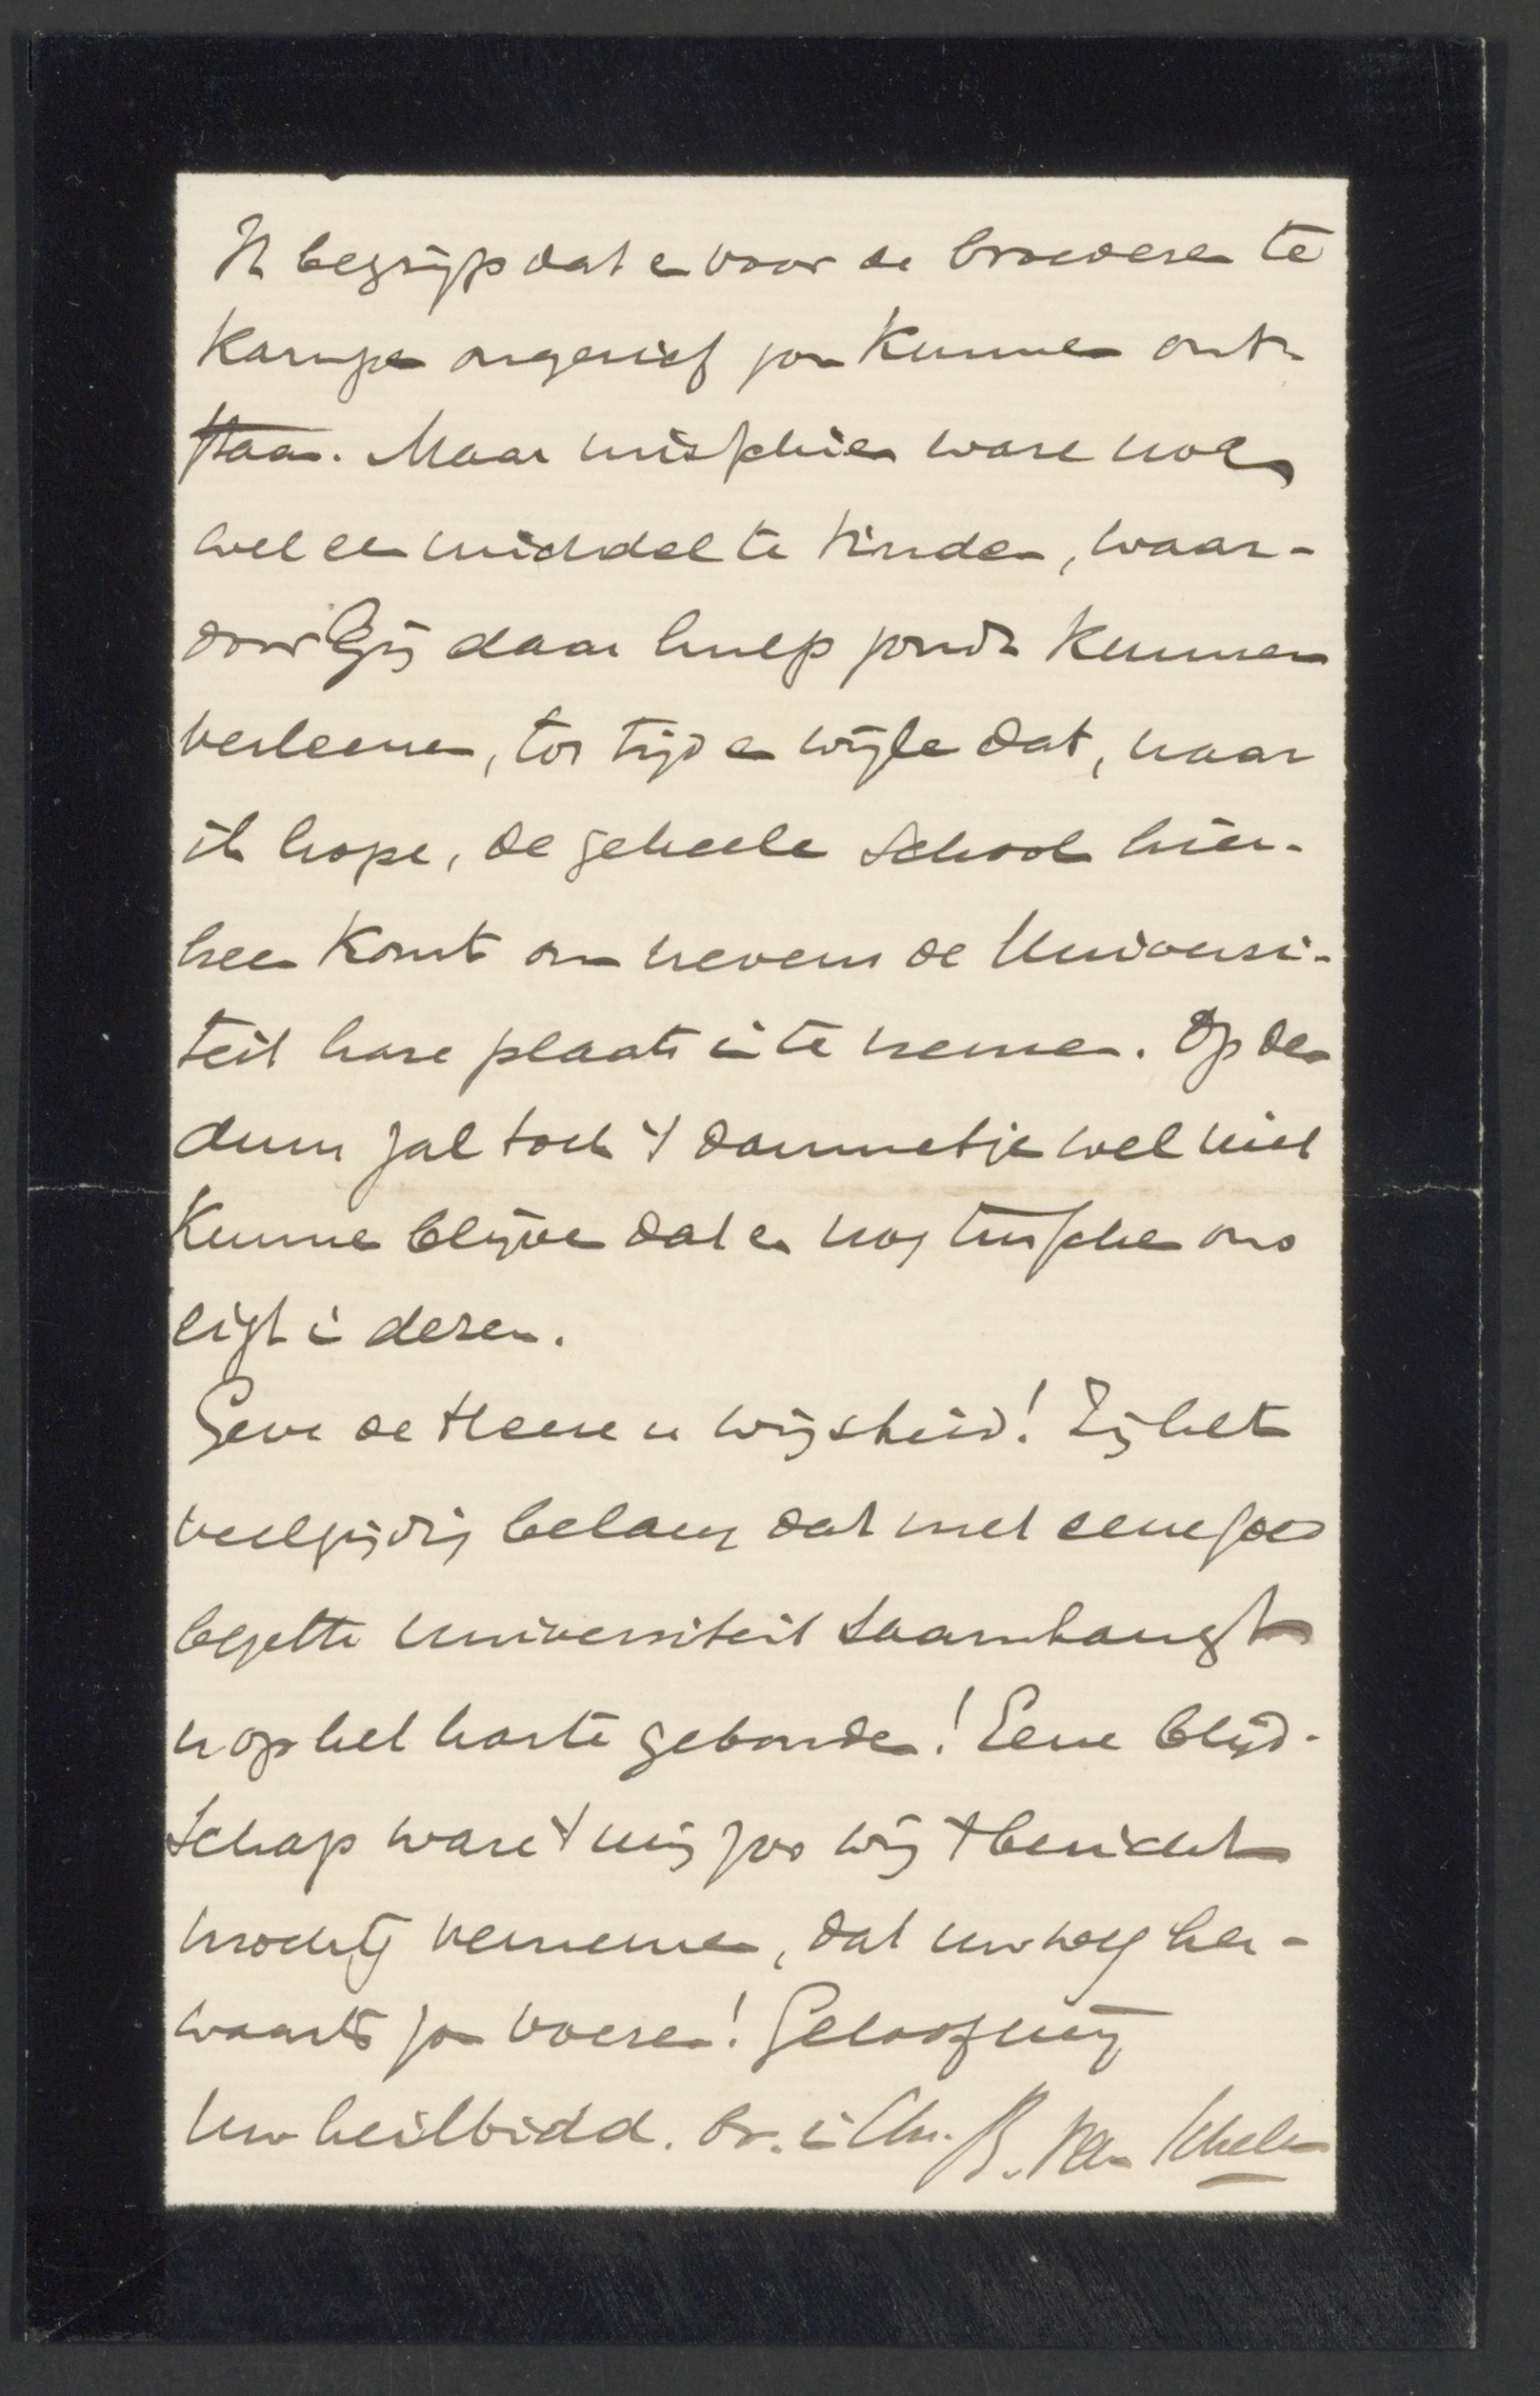 Ik begrijp dat er voor de broederen te
Kampen ongerief zou kunnen ont-
staan. Maar misschien ware nog
wel een middel te vinden, waar-
door Gij daar hulp zoudt kunnen
verleenen, tot tijd en wijle dat, naar
ik hope, de geheele School hier-
heen komt om nevens de Universi-
teit hare plaats in te nemen. Op den
duur zal toch 't dammetje wel niet
kunnen blijven dat er nog tusschen ons
ligt in dezen.
Geve de Heere u wijsheid! Zij het
veelzijdig belang dat met eene goed
bezette Universiteit saamhangt
u op het harte gebonden! Eene blijd-
schap ware 't mij zoo wij 't bericht
mochten vernemen, dat uw weg her-
waarts zou voeren! Geloof mij
Uw heilbidd. br. in Chr. B. van Schelven